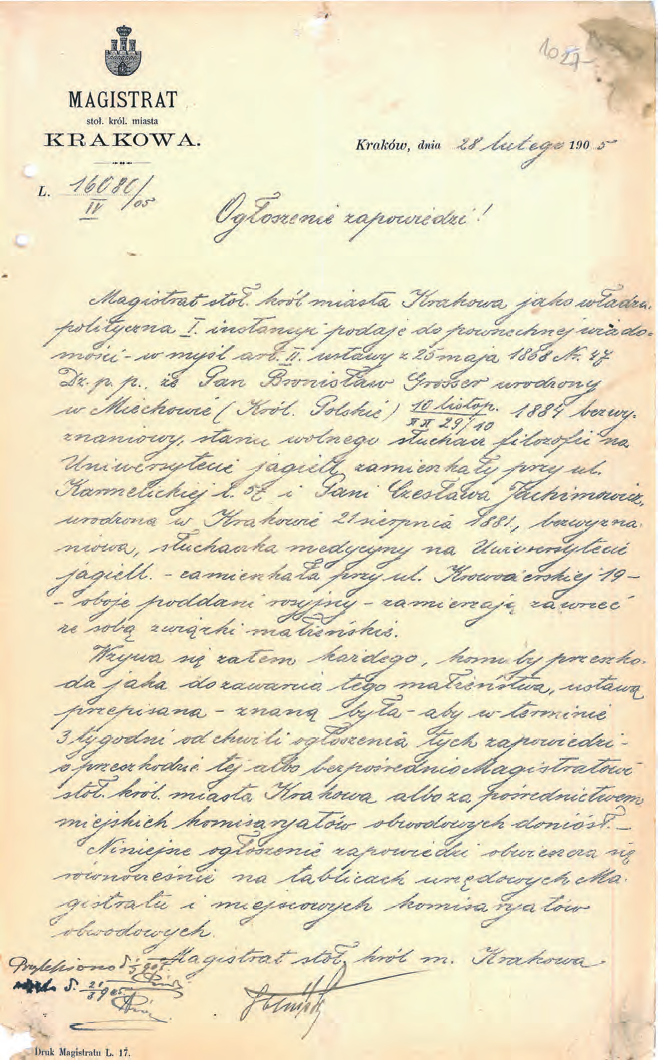 1027
MAGISTRAT
stoł. król. miasta
KRAKOWA.
Kraków, dnia 28 lutego 1905
L. 16080/IV/05
Ogłoszenie zapowiedzi!
Magistrat stoł. król miasta Krakowa jako władza
polityczna I. instancyi podaje do powszechnej wiado-
mości - w myśl art. II. ustawy z 25 maja 1868 Nr. 47
Dz. p. p., że Pan Bronisław Grosser urodzony
w Miechowie (Król. Polskie) 10 listop. 1884 bezwy-
29/10
znaniowy, stanu wolnego słuchacz filozofii na
Uniwersytecie jagiell. zamieszkały przy ul.
Karmelickiej l. 57 i Pani Czesława Jachimowicz,
urodzona w Krakowie 21 sierpnia 1881, bezwyzna-
niowa, słuchaczka medycyny na Uniwersytecie
jagiell. - zamieszkała przy ul. Krowoderskiej 19 -
- oboje poddani rosyjscy - zamierzają zawrzeć
ze sobą związki małżeńskie.
Wzywa się zatem każdego, komu by przeszko-
da jaka do zawarcia tego małżeństwa, ustawą
przepisana - znaną była - aby w terminie
3 tygodni od chwili ogłoszenia tych zapowiedzi -
o przeszkodzie tej albo bezpośrednio Magistratowi
stoł. król. miasta Krakowa albo za pośrednictwem
miejskich komisaryatów obwodowych doniósł. -
Niniejsze ogłoszenie zapowiedzi obwieszcza się
równocześnie na tablicach urzędowych Ma-
gistratu i miejscowych komisaryatów
obwodowych.
Magistrat stoł. król m. Krakowa
Przylepiono d.
d. 21/3 905
Druk Magistratu L. 17.